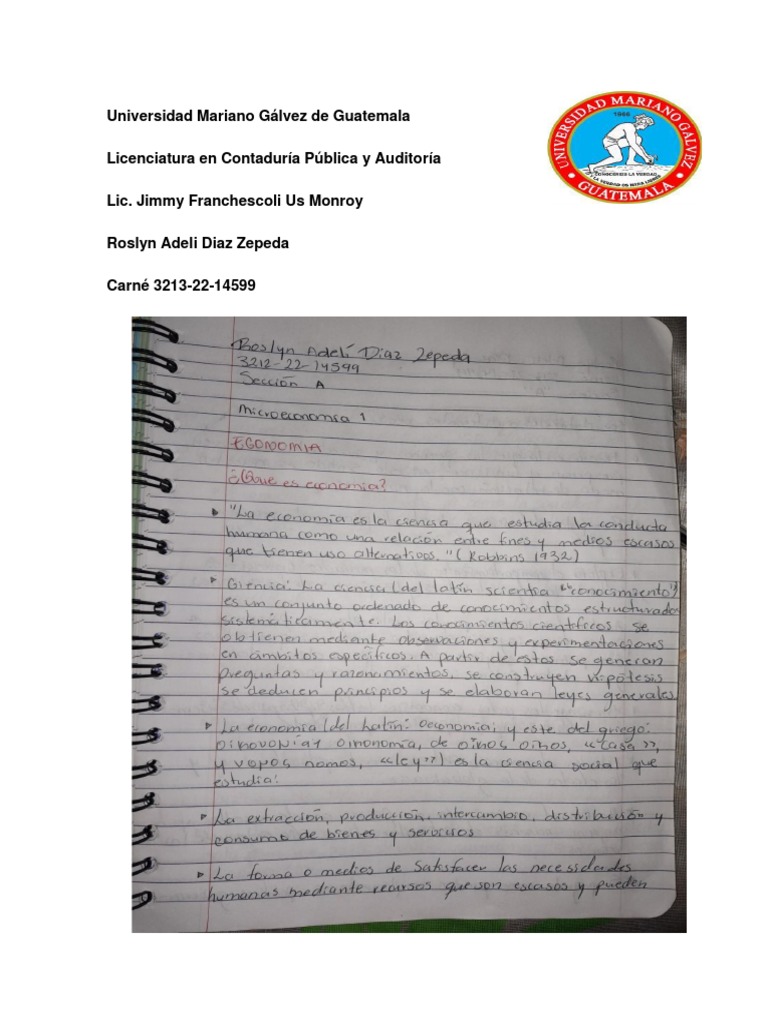 Universidad Mariano Gálvez de Guatemala
Licenciatura en Contaduría Pública y Auditoría
Lic. Jimmy Franchescoli Us Monroy
Roslyn Adeli Diaz Zepeda
Carné 3213-22-14599
UNIVERSIDAD MARIANO GALVEZ
1966
CONOCEREIS LA VERDAD
Y LA VERDAD OS HARA LIBRES
GUATEMALA
Roslyn Adelí Diaz Zepeda
3212-22-14599
Sección A
Microeconomia 1
ECONOMIA
¿Que es economia?
"La economía es la ciensia que estudia la conducta
humana como una relación entre fines y medios escasos
que tienen uso alternativos." (Robbins 1932)
Ciencia: La ciensia (del latín scientia "conocimiento")
es un conjunto ordenado de conocimientos estructurados
sistemáticamente. Los conocimientos científicos se
obtienen mediante observaciones y experimentaciones
en ámbitos específicos. A partir de estos se generan
preguntas y razonamientos, se construyen hipótesis
se deducen principios y se elaboran leyes generales
La economía (del Latín: oeconomia; y este del griego:
oinonomia, de oinos oihos, «casa»,
y vopos nomos, «ley») es la ciensia social que
estudia:
La extracción, producción, intercambio, distribución y
consumo de bienes y servicios
La forma o medios de Satisfacer las necesidades
humanas mediante recursos que son escasos y pueden